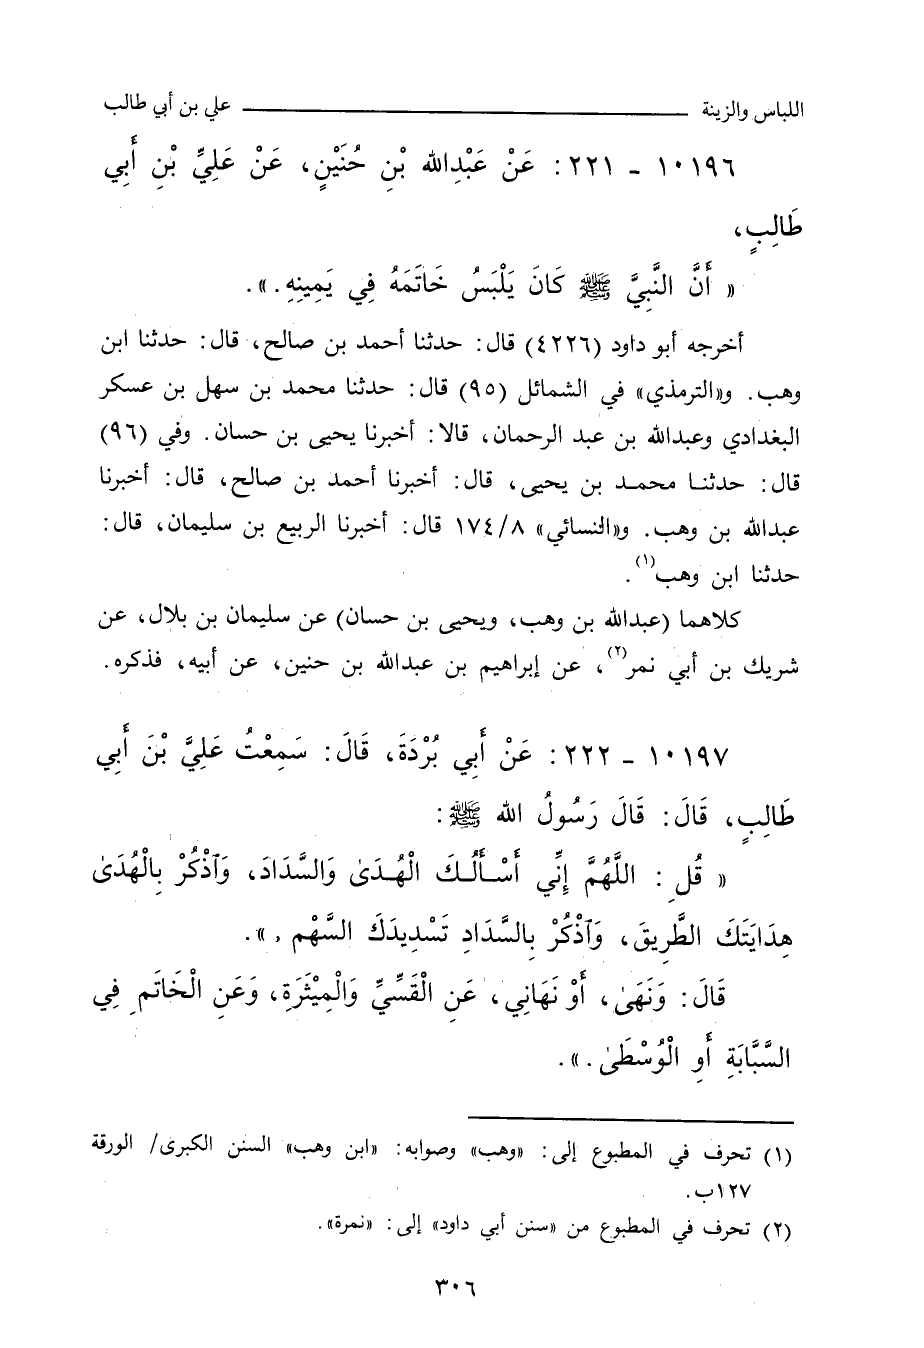 اللباس والزينة ـــــــــــــــــــــــــــــــــــــــــــ علي بن أبي طالب
١٠١٩٦ - ٢٢١: عَنْ عَبْدِالله بْنِ حُنَيْنٍ، عَنْ عَلِيِّ بْنِ أَبِي
طَالِبٍ،
« أَنَّ النَّبِيَّ ﷺ كَانَ يَلْبَسُ خَاتَمَهُ فِي يَمِينِهِ. ».
أخرجه أبو داود (٤٢٢٦) قال: حدثنا أحمد بن صالح، قال: حدثنا ابن
وهب. و«الترمذي» في الشمائل (٩٥) قال: حدثنا محمد بن سهل بن عسكر
البغدادي وعبدالله بن عبد الرحمان، قالا: أخبرنا يحيى بن حسان. وفي (٩٦)
قال: حدثنا محمد بن يحيى، قال: أخبرنا أحمد بن صالح، قال: أخبرنا
عبدالله بن وهب. و«النسائي» ١٧٤/٨ قال: أخبرنا الربيع بن سليمان، قال:
حدثنا ابن وهب(١).
كلاهما (عبدالله بن وهب، ويحيى بن حسان) عن سليمان بن بلال، عن
شريك بن أبي نمر(٢)، عن إبراهيم بن عبدالله بن حنين، عن أبيه، فذكره.
١٠١٩٧ - ٢٢٢: عَنْ أَبِي بُرْدَةَ، قَالَ: سَمِعْتُ عَلِيَّ بْنَ أَبِي
طَالِبٍ، قَالَ: قَالَ رَسُولُ الله ﷺ:
« قُلِ: اللَّهُمَّ إِنِّي أَسْأَلُكَ الْهُدَىٰ وَالسَّدَادَ، وَٱذْكُرْ بِالْهُدَىٰ
هِدَايَتَكَ الطَّرِيقَ، وَٱذْكُرْ بِالسَّدَادِ تَسْدِيدَكَ السَّهْمَ. ».
قَالَ: وَنَهَىٰ، أَوْ نَهَانِي، عَنِ الْقَسِّيِّ وَالْمِيْثَرَةِ، وَعَنِ الْخَاتَمِ فِي
السَّبَّابَةِ أَوِ الْوُسْطَىٰ. ».
(١) تحرف في المطبوع إلى: «وهب» وصوابه: «ابن وهب» السنن الكبرى/ الورقة
١٢٧ب.
(٢) تحرف في المطبوع من «سنن أبي داود» إلى: «نمرة».
٣٠٦